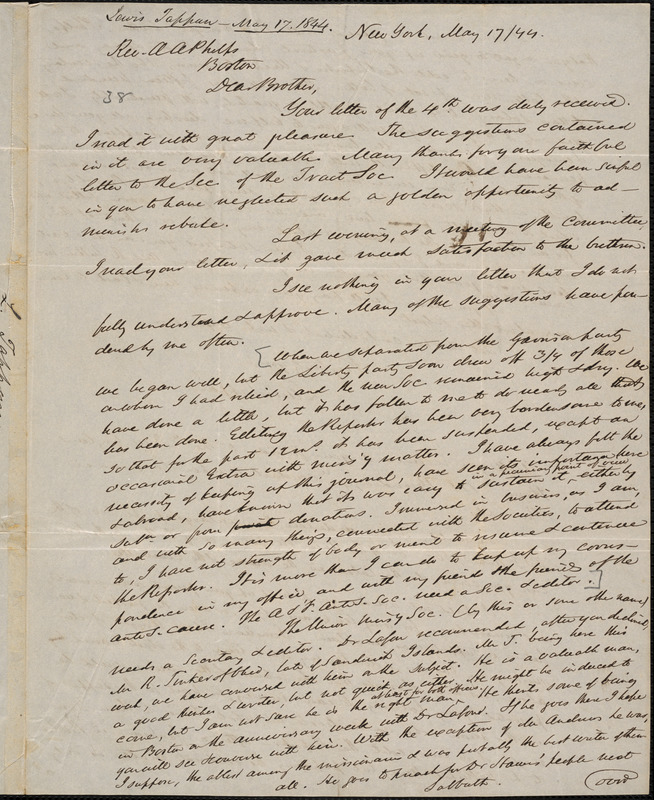 Lewis Tappan – May 17. 1844.
New York, May 17/44.
Rev. A A Phelps
Boston
Dear Brother,
38
Your letter of the 4th was duly received.
I read it with great pleasure. The suggestions contained
in it are very valuable. Many thanks for your faithful
letter to the Sec of the Tract Soc. It would have been sinful
in you to have neglected such a golden opportunity to ad-
minister rebuke.
Last evening, at a meeting of the Committee,
I read your letter, & it gave much satisfaction to the brethren.
I see nothing in your letter that I do not
fully understand & approve. Many of the suggestions have pon-
dered by me often.
[When we separated from the Garrison party
we began well, but the Liberty party soon drew off 3/4 of those
on whom I had relied, and the new Soc remained high & dry. We
have done a little, but it has fallen to me to do nearly all that
has been done. Editing the Reporter has been very burdensome to me,
so that for the past 12 mo. it has been suspended, except an
occasional Extra with miss'y matter. I have always felt the
necessity of keeping up this journal, have seen its importance here
& abroad, have known that it was easy to sustain it, in a pecuniary point of view either by
Subn or from donations. Immersed in business, as I am,
and with so many things, connected with the Societies, to attend
to, I have not strength of body or mind to resume & continue
the Reporter. It is more than I can do to keep up my corres-
pondence in my office, and with my friends & the friends of the
anti S. cause. The A & F. Anti S. Soc. need a Sec. & editor.]
The Union Miss'y Soc. (by this or some other name)
needs a Secretary & editor. Dr Lafon recommended, after you declined,
Mr R. Tinker of Ohio, late of Sandwich Islands. Mr T. being here this
week, we have conversed with him on the subject. He is a valuable man,
a good thinker & writer, but not quick as either. He might be induced to
come, but I am not sure he is the right man at least for both offices. He thinks some of being
in Boston on the anniversary week with Dr Lafon. If he goes there I hope
you will see & converse with him. With the exception of Mr Andrews he was,
I suppose, the ablest among the missionaries & was probably the best writer of them
all. He goes to preach for Dr people next
Sabbath.
(over)
L. Tappan